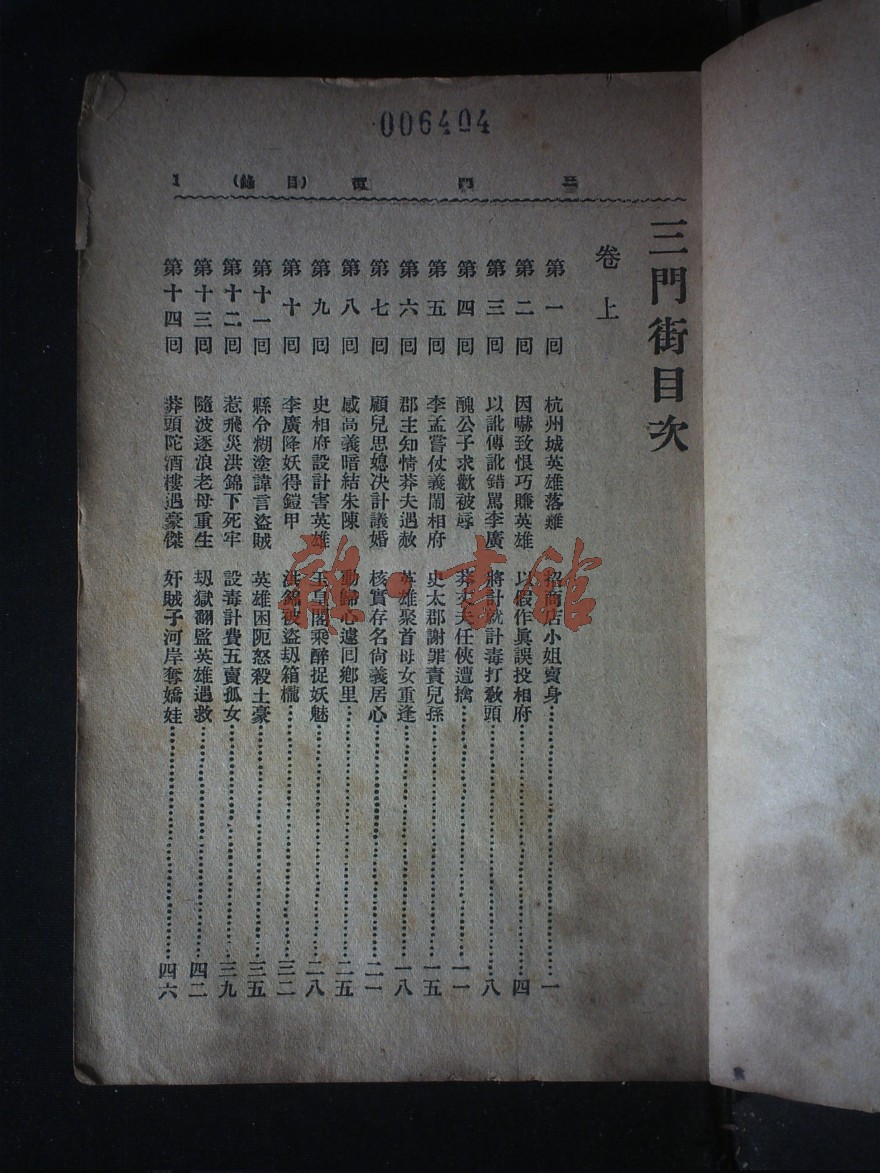 006404
三門街（目錄）1
三門街目次
卷上
第一回 杭州城英雄落難 招商店小姐賣身 一
第二回 因嚇致恨巧賺英雄 以假作眞誤投相府 四
第三回 以訛傳訛錯罵李廣 將計就計毒打敎頭 八
第四回 醜公子求歡被辱 莽丈夫任俠遭擒 一一
第五回 李孟嘗仗義鬧相府 史太郡謝罪責兒孫 一五
第六回 郡主知情莽夫遇赦 英雄聚首母女重逢 一八
第七回 顧兒思媳決計議婚 核實存名尙義居心 二一
第八回 感高義暗結朱陳 動歸心遽回鄉里 二五
第九回 史相府設計害英雄 玉皇閣乘醉捉妖魅 二八
第十回 李廣降妖得鎧甲 洪錦被盜刼箱櫳 三二
第十一回 縣令糊塗諱言盜賊 英雄困阨怒殺土豪 三五
第十二回 惹飛災洪錦下死牢 設毒計費五賣孤女 三九
第十三回 隨波逐浪老母重生 刼獄翻監英雄遇救 四二
第十四回 莽頭陀酒樓遇豪傑 奸賊子河岸奪嬌娃 四六
雜·書館